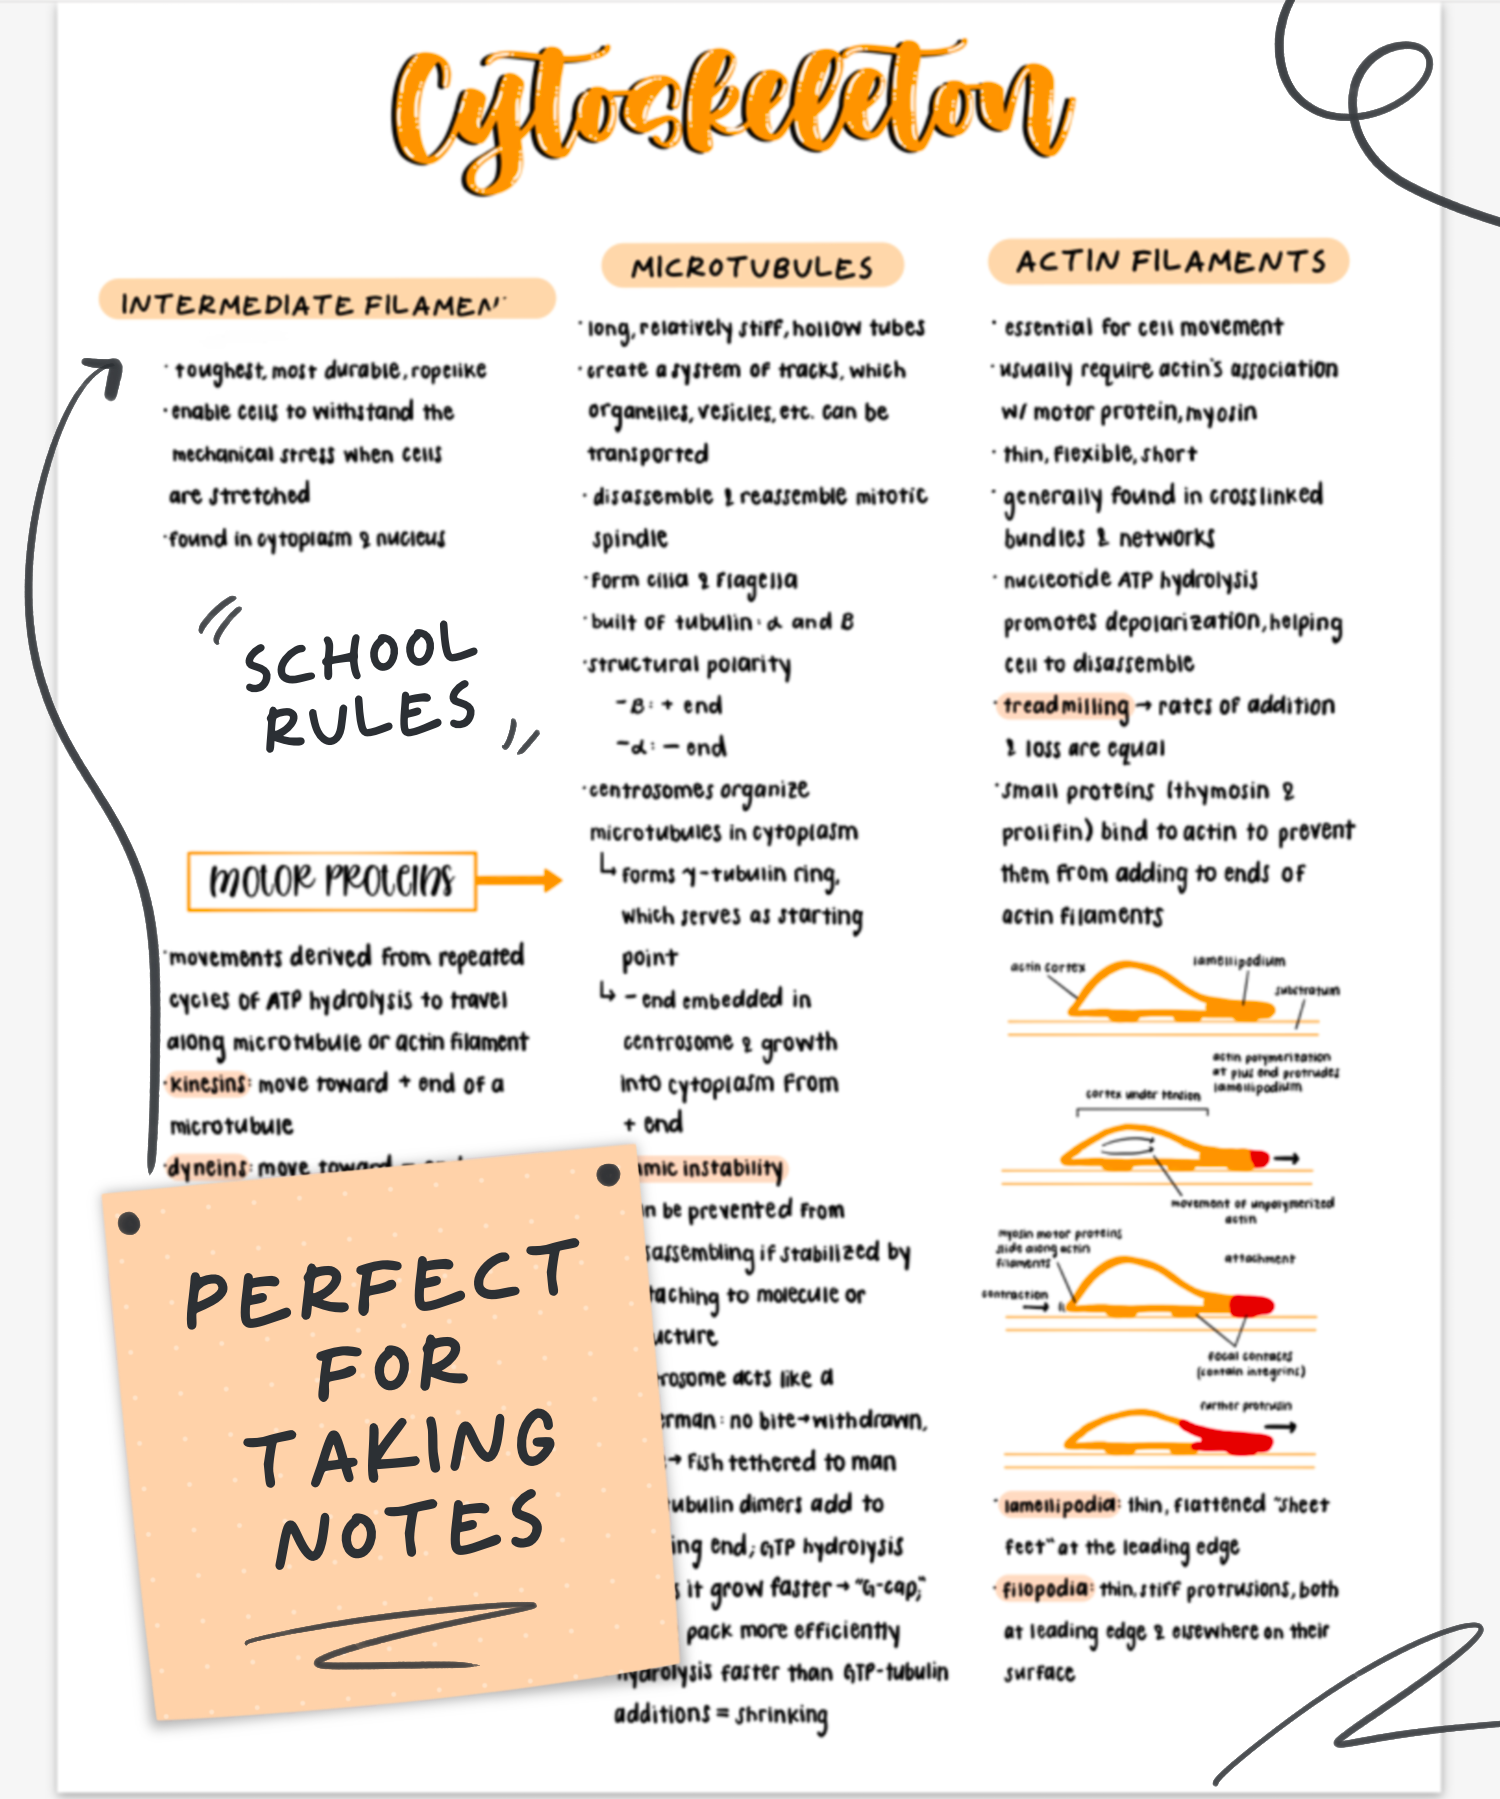 Cytoskeleton
INTERMEDIATE FILAMEN
· toughest, most durable, ropelike
· enable cells to withstand the
mechanical stress when cells
are stretched
· found in cytoplasm & nucleus
SCHOOL
RULES
MOTOR PROTEINS
· movements derived from repeated
cycles of ATP hydrolysis to travel
along microtubule or actin filament
· kinesins: move toward + end of a
microtubule
· dyneins: move toward – end
PERFECT
FOR
TAKING
NOTES
MICROTUBULES
· long, relatively stiff, hollow tubes
· create a system of tracks, which
organelles, vesicles, etc. can be
transported
· disassemble & reassemble mitotic
spindle
· form cilia & flagella
· built of tubulin: α and B
· structural polarity
– B: + end
– α: – end
· centrosomes organize
microtubules in cytoplasm
↳ forms γ-tubulin ring,
which serves as starting
point
↳ – end embedded in
centrosome & growth
into cytoplasm from
+ end
mic instability
n be prevented from
sassembling if stabilized by
taching to molecule or
ucture
rosome acts like a
erman: no bite → withdrawn,
→ fish tethered to man
ubulin dimers add to
ing end; GTP hydrolysis
s it grow faster → "G-cap;"
pack more efficiently
hydrolysis faster than GTP-tubulin
additions = shrinking
ACTIN FILAMENTS
· essential for cell movement
· usually require actin's association
w/ motor protein, myosin
· thin, flexible, short
· generally found in crosslinked
bundles & networks
· nucleotide ATP hydrolysis
promotes depolarization, helping
cell to disassemble
· treadmilling → rates of addition
& loss are equal
· small proteins (thymosin &
prolifin) bind to actin to prevent
them from adding to ends of
actin filaments
actin cortex
lamellipodium
substratum
actin polymeritation
at plus end protrudes
lamellipodium
cortex under tension
movement of unpolymerized
actin
myosin motor proteins
slide along actin
filaments
attachment
contraction
focal contacts
(contain integrins)
further protrusin
· lamellipodia: thin, flattened "sheet
feet" at the leading edge
· filopodia: thin, stiff protrusions, both
at leading edge & elsewhere on their
surface